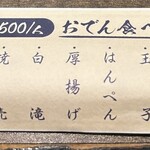 500/人 おでん食べ
玉子
はんぺん
厚揚げ
白滝